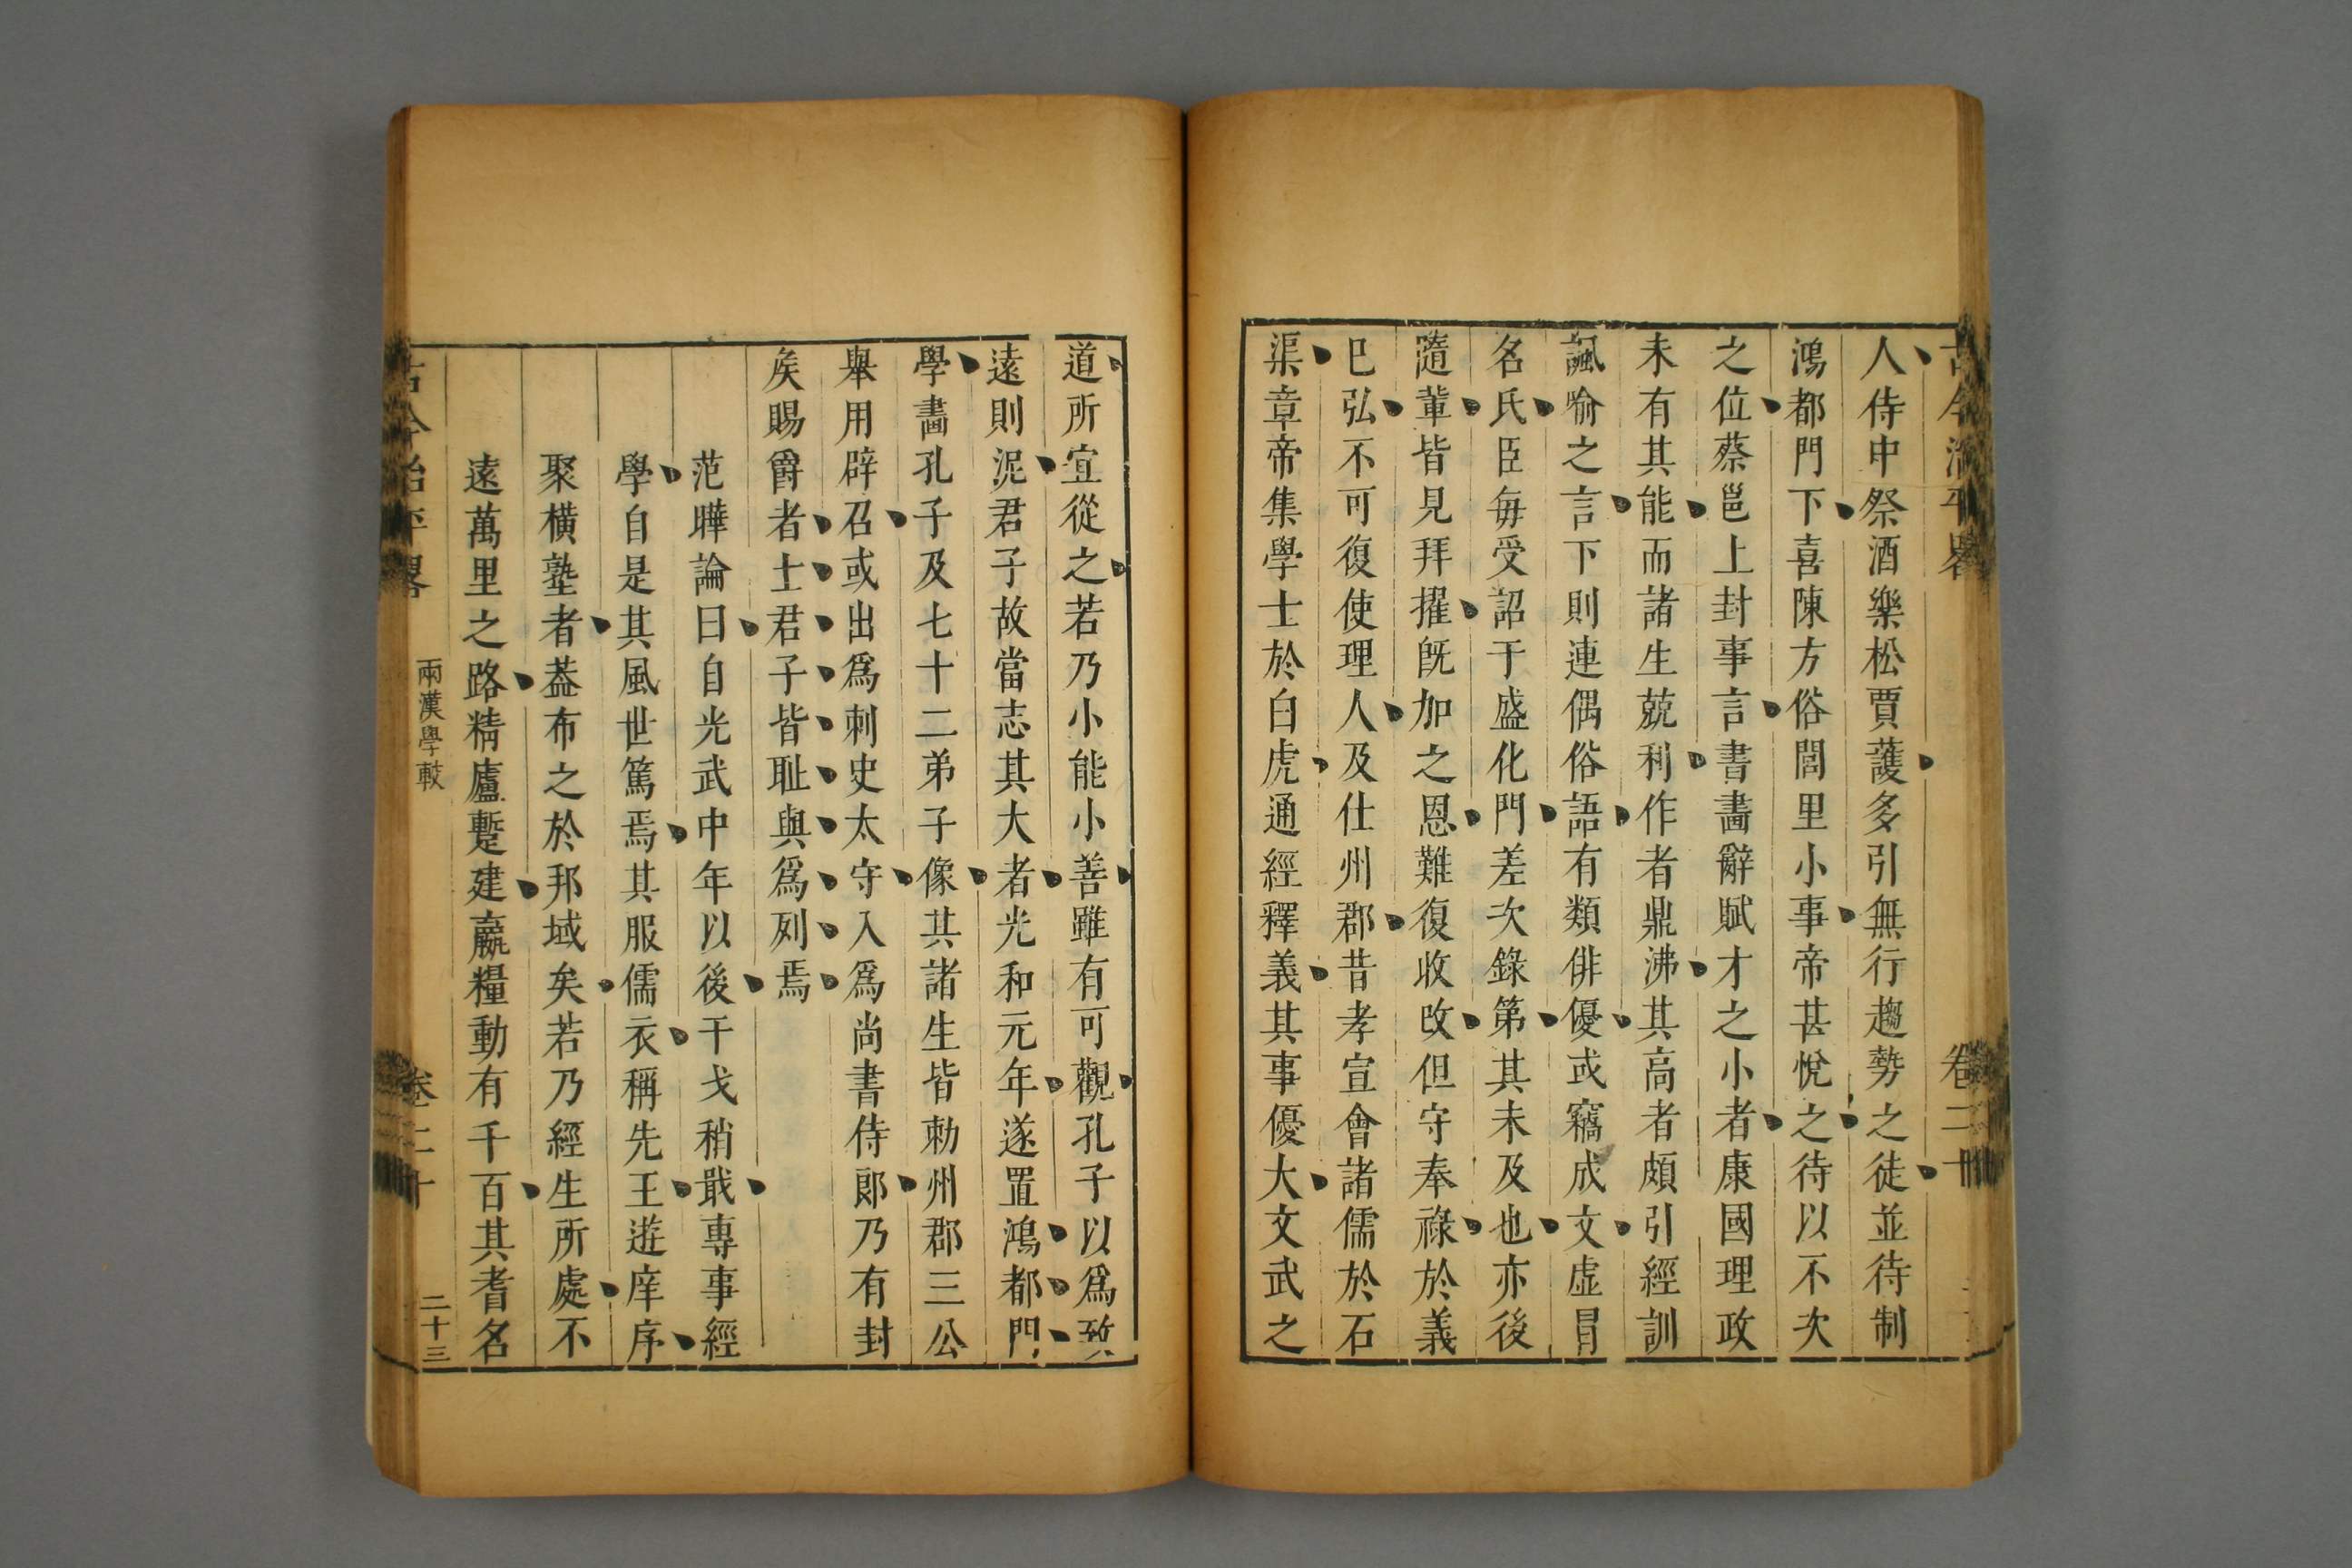 古今治平畧
卷二十
人侍中祭酒樂松賈護多引無行趨勢之徒並待制
鴻都門下喜陳方俗閭里小事帝甚悅之待以不次
之位蔡邕上封事言書畵辭賦才之小者康國理政
未有其能而諸生兢利作者鼎沸其高者頗引經訓
諷喻之言下則連偶俗語有類俳優或竊成文虛冒
名氏臣毎受詔于盛化門差次錄第其未及也亦後
隨軰皆見拜擢旣加之恩難復收改但守奉祿於義
已弘不可復使理人及仕州郡昔孝宣會諸儒於石
渠章帝集學士於白虎通經釋義其事優大文武之
道所宜從之若乃小能小善雖有可觀孔子以爲致
遠則泥君子故當志其大者光和元年遂置鴻都門
學畵孔子及七十二弟子像其諸生皆勅州郡三公
舉用辟召或出爲刺史太守入爲尚書侍郞乃有封
矦賜爵者士君子皆耻與爲列焉
范曄論曰自光武中年以後干戈稍戢專事經
學自是其風世篤焉其服儒衣稱先王遊庠序
聚橫塾者葢布之於邦域矣若乃經生所處不
遠萬里之路精廬蹔建贏糧動有千百其耆名
古今治平畧
兩漢學較
卷二十
二十三